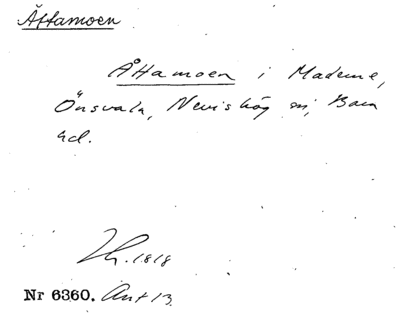 Åttamoen
Åttamoen i Maderne,
Önsvala, Nevishög sn, Bara
hd.
Th. 1818
Nr 6360. Ant 13.